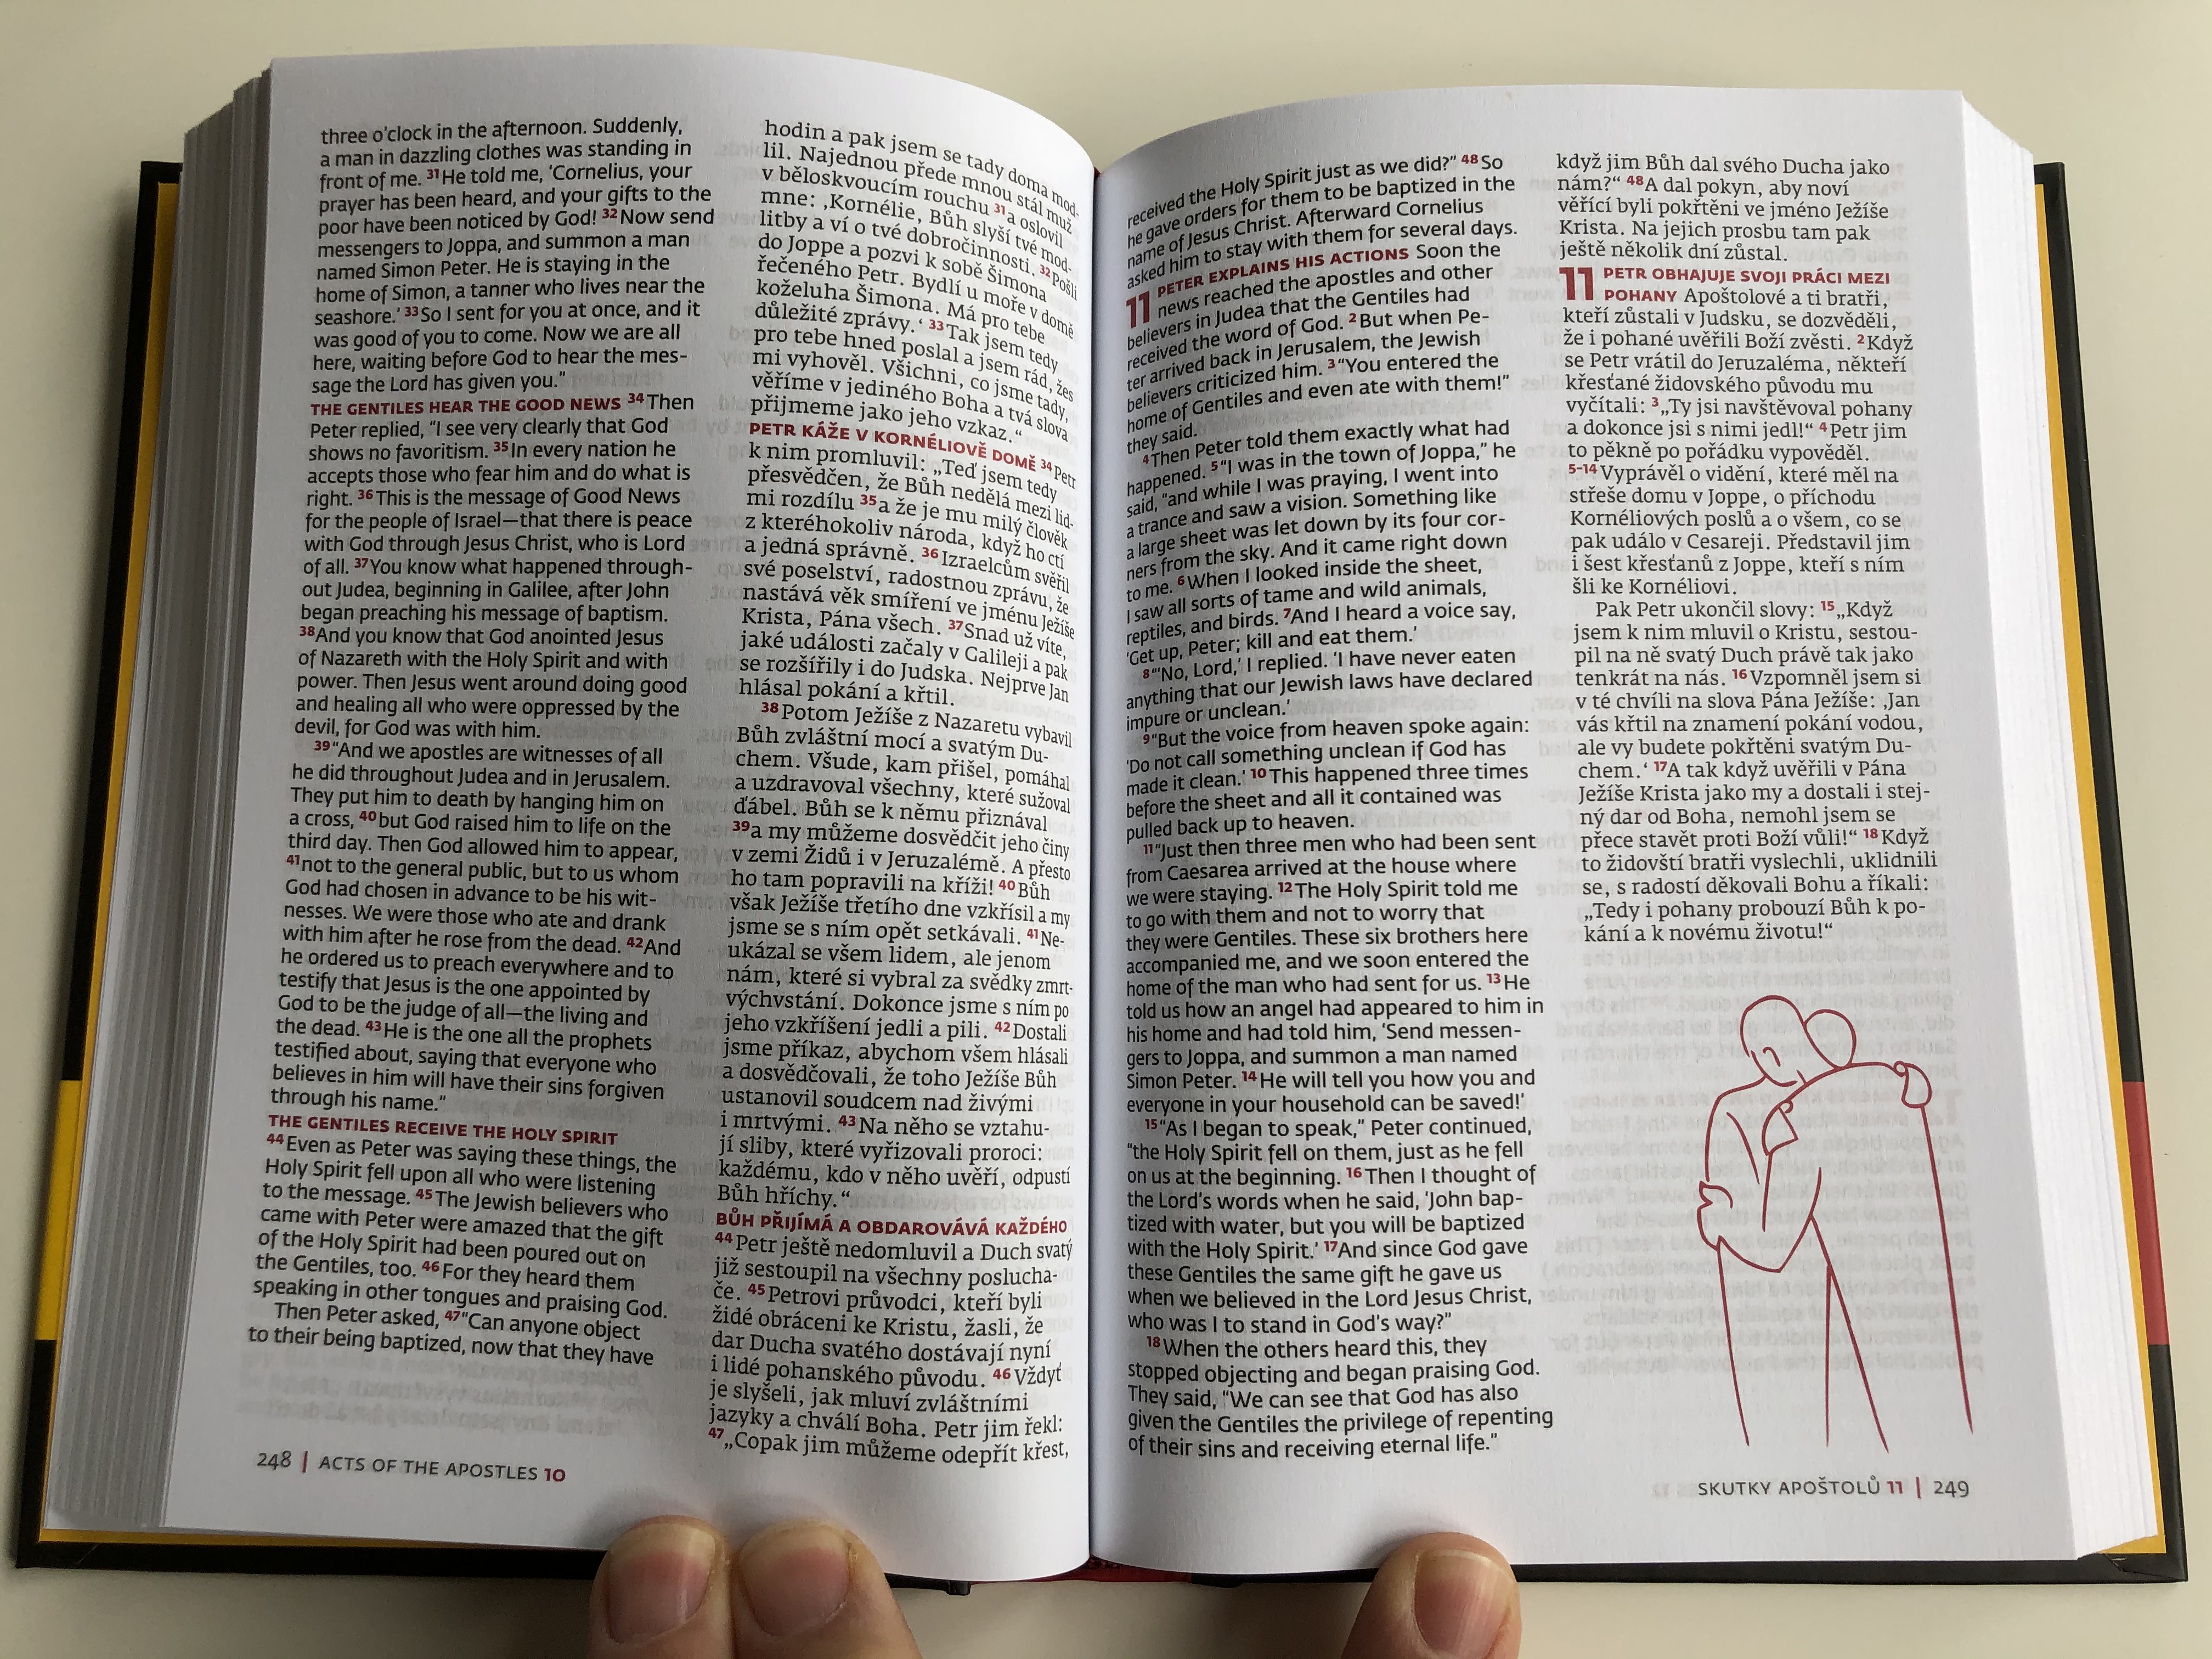 three o'clock in the afternoon. Suddenly,
a man in dazzling clothes was standing in
front of me. 31He told me, 'Cornelius, your
prayer has been heard, and your gifts to the
poor have been noticed by God! 32Now send
messengers to Joppa, and summon a man
named Simon Peter. He is staying in the
home of Simon, a tanner who lives near the
seashore.' 33So I sent for you at once, and it
was good of you to come. Now we are all
here, waiting before God to hear the mes-
sage the Lord has given you."
THE GENTILES HEAR THE GOOD NEWS 34Then
Peter replied, "I see very clearly that God
shows no favoritism. 35In every nation he
accepts those who fear him and do what is
right. 36This is the message of Good News
for the people of Israel—that there is peace
with God through Jesus Christ, who is Lord
of all. 37You know what happened through-
out Judea, beginning in Galilee, after John
began preaching his message of baptism.
38And you know that God anointed Jesus
of Nazareth with the Holy Spirit and with
power. Then Jesus went around doing good
and healing all who were oppressed by the
devil, for God was with him.
39"And we apostles are witnesses of all
he did throughout Judea and in Jerusalem.
They put him to death by hanging him on
a cross, 40but God raised him to life on the
third day. Then God allowed him to appear,
41not to the general public, but to us whom
God had chosen in advance to be his wit-
nesses. We were those who ate and drank
with him after he rose from the dead. 42And
he ordered us to preach everywhere and to
testify that Jesus is the one appointed by
God to be the judge of all—the living and
the dead. 43He is the one all the prophets
testified about, saying that everyone who
believes in him will have their sins forgiven
through his name."
THE GENTILES RECEIVE THE HOLY SPIRIT
44Even as Peter was saying these things, the
Holy Spirit fell upon all who were listening
to the message. 45The Jewish believers who
came with Peter were amazed that the gift
of the Holy Spirit had been poured out on
the Gentiles, too. 46For they heard them
speaking in other tongues and praising God.
Then Peter asked, 47"Can anyone object
to their being baptized, now that they have
248 | ACTS OF THE APOSTLES 10
hodin a pak jsem se tady doma mod-
lil. Najednou přede mnou stál muž
v běloskvoucím rouchu 31a oslovil
mne: ‚Kornélie, Bůh slyší tvé mod-
litby a ví o tvé dobročinnosti. 32Pošli
do Joppe a pozvi k sobě Šimona
řečeného Petr. Bydlí u moře v domě
koželuha Šimona. Má pro tebe
důležité zprávy.‘ 33Tak jsem tedy
pro tebe hned poslal a jsem rád, žes
mi vyhověl. Všichni, co jsme tady,
věříme v jediného Boha a tvá slova
přijmeme jako jeho vzkaz.“
PETR KÁŽE V KORNÉLIOVĚ DOMĚ 34Petr
k nim promluvil: „Teď jsem tedy
přesvědčen, že Bůh nedělá mezi lid-
mi rozdílu 35a že je mu milý člověk
z kteréhokoliv národa, když ho ctí
a jedná správně. 36Izraelcům svěřil
své poselství, radostnou zprávu, že
nastává věk smíření ve jménu Ježíše
Krista, Pána všech. 37Snad už víte,
jaké události začaly v Galileji a pak
se rozšířily i do Judska. Nejprve Jan
hlásal pokání a křtil.
38Potom Ježíše z Nazaretu vybavil
Bůh zvláštní mocí a svatým Du-
chem. Všude, kam přišel, pomáhal
a uzdravoval všechny, které sužoval
ďábel. Bůh se k němu přiznával
39a my můžeme dosvědčit jeho činy
v zemi Židů i v Jeruzalémě. A přesto
ho tam popravili na kříži! 40Bůh
však Ježíše třetího dne vzkřísil a my
jsme se s ním opět setkávali. 41Ne-
ukázal se všem lidem, ale jenom
nám, které si vybral za svědky zmrt-
výchvstání. Dokonce jsme s ním po
jeho vzkříšení jedli a pili. 42Dostali
jsme příkaz, abychom všem hlásali
a dosvědčovali, že toho Ježíše Bůh
ustanovil soudcem nad živými
i mrtvými. 43Na něho se vztahu-
jí sliby, které vyřizovali proroci:
každému, kdo v něho uvěří, odpustí
Bůh hříchy.“
BŮH PŘIJÍMÁ A OBDAROVÁVÁ KAŽDÉHO
44Petr ještě nedomluvil a Duch svatý
již sestoupil na všechny poslucha-
če. 45Petrovi průvodci, kteří byli
židé obráceni ke Kristu, žasli, že
dar Ducha svatého dostávají nyní
i lidé pohanského původu. 46Vždyť
je slyšeli, jak mluví zvláštními
jazyky a chválí Boha. Petr jim řekl:
47„Copak jim můžeme odepřít křest,
received the Holy Spirit just as we did?" 48So
he gave orders for them to be baptized in the
name of Jesus Christ. Afterward Cornelius
asked him to stay with them for several days.
11 PETER EXPLAINS HIS ACTIONS Soon the
news reached the apostles and other
believers in Judea that the Gentiles had
received the word of God. 2But when Pe-
ter arrived back in Jerusalem, the Jewish
believers criticized him. 3"You entered the
home of Gentiles and even ate with them!"
they said.
4Then Peter told them exactly what had
happened. 5"I was in the town of Joppa," he
said, "and while I was praying, I went into
a trance and saw a vision. Something like
a large sheet was let down by its four cor-
ners from the sky. And it came right down
to me. 6When I looked inside the sheet,
I saw all sorts of tame and wild animals,
reptiles, and birds. 7And I heard a voice say,
'Get up, Peter; kill and eat them.'
8"'No, Lord,' I replied. 'I have never eaten
anything that our Jewish laws have declared
impure or unclean.'
9"But the voice from heaven spoke again:
'Do not call something unclean if God has
made it clean.' 10This happened three times
before the sheet and all it contained was
pulled back up to heaven.
11"Just then three men who had been sent
from Caesarea arrived at the house where
we were staying. 12The Holy Spirit told me
to go with them and not to worry that
they were Gentiles. These six brothers here
accompanied me, and we soon entered the
home of the man who had sent for us. 13He
told us how an angel had appeared to him in
his home and had told him, 'Send messen-
gers to Joppa, and summon a man named
Simon Peter. 14He will tell you how you and
everyone in your household can be saved!'
15"As I began to speak," Peter continued,
"the Holy Spirit fell on them, just as he fell
on us at the beginning. 16Then I thought of
the Lord's words when he said, 'John bap-
tized with water, but you will be baptized
with the Holy Spirit.' 17And since God gave
these Gentiles the same gift he gave us
when we believed in the Lord Jesus Christ,
who was I to stand in God's way?"
18When the others heard this, they
stopped objecting and began praising God.
They said, "We can see that God has also
given the Gentiles the privilege of repenting
of their sins and receiving eternal life."
když jim Bůh dal svého Ducha jako
nám?“ 48A dal pokyn, aby noví
věřící byli pokřtěni ve jméno Ježíše
Krista. Na jejich prosbu tam pak
ještě několik dní zůstal.
11 PETR OBHAJUJE SVOJI PRÁCI MEZI
POHANY Apoštolové a ti bratři,
kteří zůstali v Judsku, se dozvěděli,
že i pohané uvěřili Boží zvěsti. 2Když
se Petr vrátil do Jeruzaléma, někteří
křesťané židovského původu mu
vyčítali: 3„Ty jsi navštěvoval pohany
a dokonce jsi s nimi jedl!“ 4Petr jim
to pěkně po pořádku vypověděl.
5-14Vyprávěl o vidění, které měl na
střeše domu v Joppe, o příchodu
Kornéliových poslů a o všem, co se
pak událo v Cesareji. Představil jim
i šest křesťanů z Joppe, kteří s ním
šli ke Kornéliovi.
Pak Petr ukončil slovy: 15„Když
jsem k nim mluvil o Kristu, sestou-
pil na ně svatý Duch právě tak jako
tenkrát na nás. 16Vzpomněl jsem si
v té chvíli na slova Pána Ježíše: ‚Jan
vás křtil na znamení pokání vodou,
ale vy budete pokřtěni svatým Du-
chem.‘ 17A tak když uvěřili v Pána
Ježíše Krista jako my a dostali i stej-
ný dar od Boha, nemohl jsem se
přece stavět proti Boží vůli!“ 18Když
to židovští bratři vyslechli, uklidnili
se, s radostí děkovali Bohu a říkali:
„Tedy i pohany probouzí Bůh k po-
kání a k novému životu!“
SKUTKY APOŠTOLŮ 11 | 249